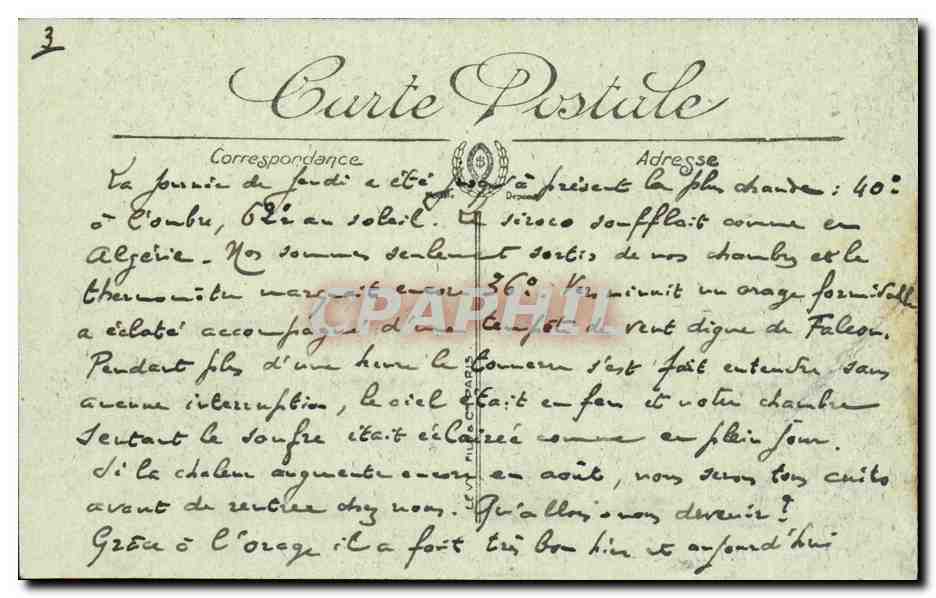 3
Carte Postale
Correspondance
Adresse
La journée de jeudi a été jusqu'à présent la plus chaude : 40°
à l'ombre, 62° au soleil. Le siroco soufflait comme en
Algérie. Nos sommes seulement sortis de nos chambres et le
thermomètre marquait encore 36°. Vers minuit un orage formidable
a éclaté accompagné d'une tempête de vent digne de Falcon.
Pendant plus d'une heure le tonnerre s'est fait entendre sans
aucune interruption, le ciel était en feu et notre chambre
sentant le soufre était éclairée comme en plein jour.
Si la chaleur augmente encore en août, nous serons tous cuits
avant de rentrer chez nous. Qu'allons-nous devenir ?
Grâce à l'orage il a fait très bon hier et aujourd'hui
LEVY FILS & Cie PARIS
CPAPHIL